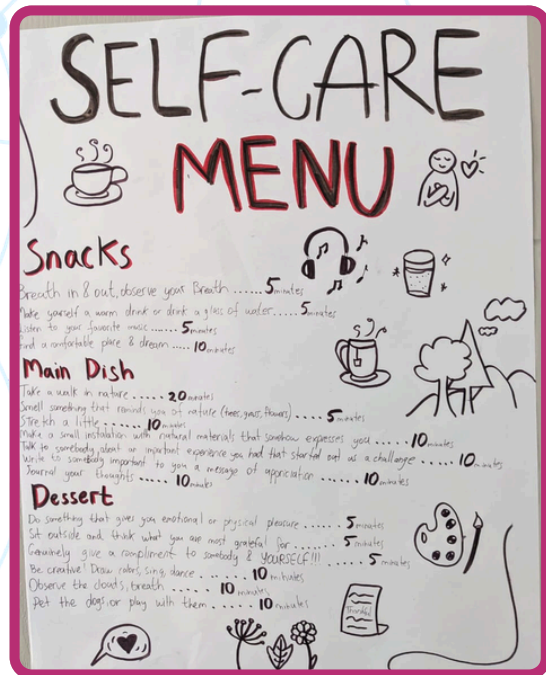 SELF-CARE
MENU
Snacks
Breath in & out, observe your Breath ...... 5 minutes
Make yourself a warm drink or drink a glass of water .... 5 minutes
Listen to your favorite music ...... 5 minutes
Find a comfortable place & dream .... 10 minutes
Main Dish
Take a walk in nature ..... 20 minutes
Smell something that reminds you of nature (trees, grass, flowers) .... 5 minutes
Stretch a little ...... 10 minutes
Make a small installation with natural materials that somehow expesses you .... 10 minutes
Talk to somebody about an important experience you had that started out as a challenge ..... 10 minutes
Write to somebody important to you a message of appriciation ..... 10 minutes
Journal your thoughts ..... 10 minutes
Dessert
Do something that gives you emotional or physical pleasure ..... 5 minutes
Sit outside and think what you are most grateful for ..... 5 minutes
Genuinely give a compliment to somebody & YOURSELF!!! ..... 5 minutes
Be creative! Draw, sing, dance ...... 10 minutes
Observe the clouds, breath ..... 10 minutes
Pet the dogs, or play with them ..... 10 minutes